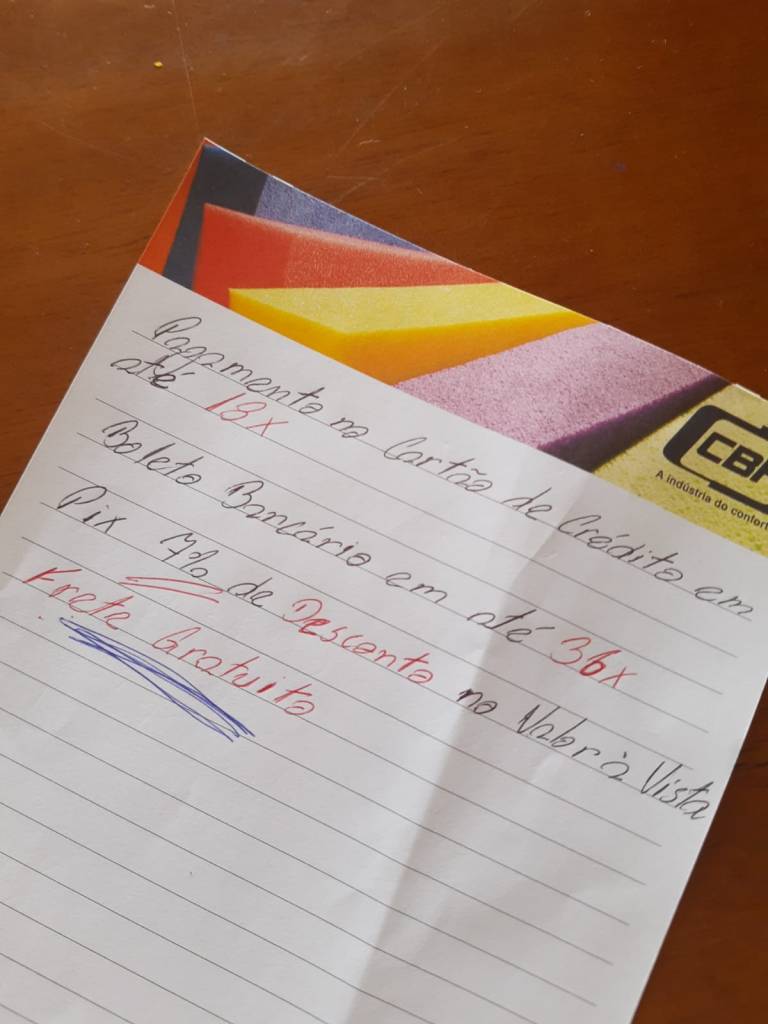 CBP
A indústria do confort
Pagamento no Cartão de Crédito em
até 18x
Boleto Bancário em até 36x
Pix 7% de Desconto no Valor à Vista
Frete Gratuito